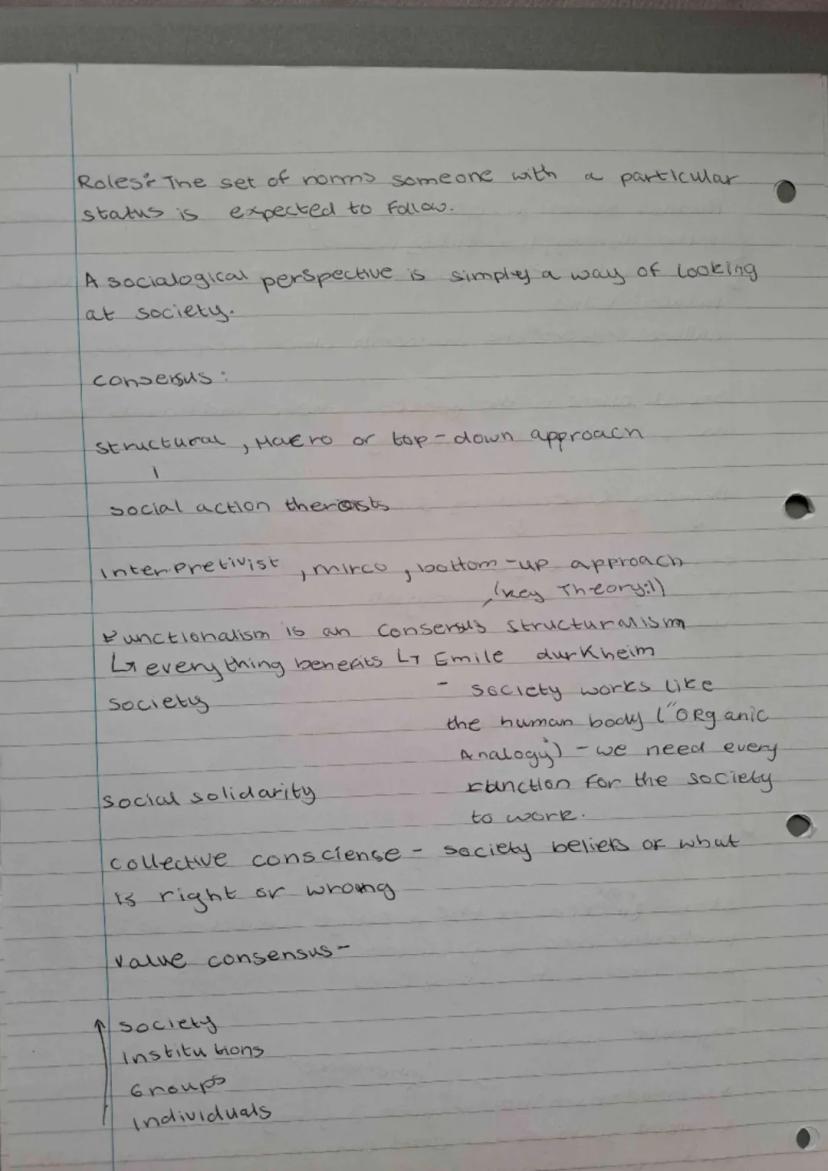 Roles: The set of norms someone with a particular
status is expected to follow.
A socialogical perspective is simply a way of looking
at society.
consersus:
structural, Macro or top-down approach
social action therosts
Interpretivist, mirco, bottom-up approach
(key Theory:1)
Functionalism is an consersus structuralism
↳ everything benefits ↳ Emile durkheim
society
- society works like
the human body ("Organic
Analogy") - we need every
function for the society
to work.
social solidarity
collective consciense - society beliefs of what
is right or wrong
value consensus-
society
institutions
Groups
individuals